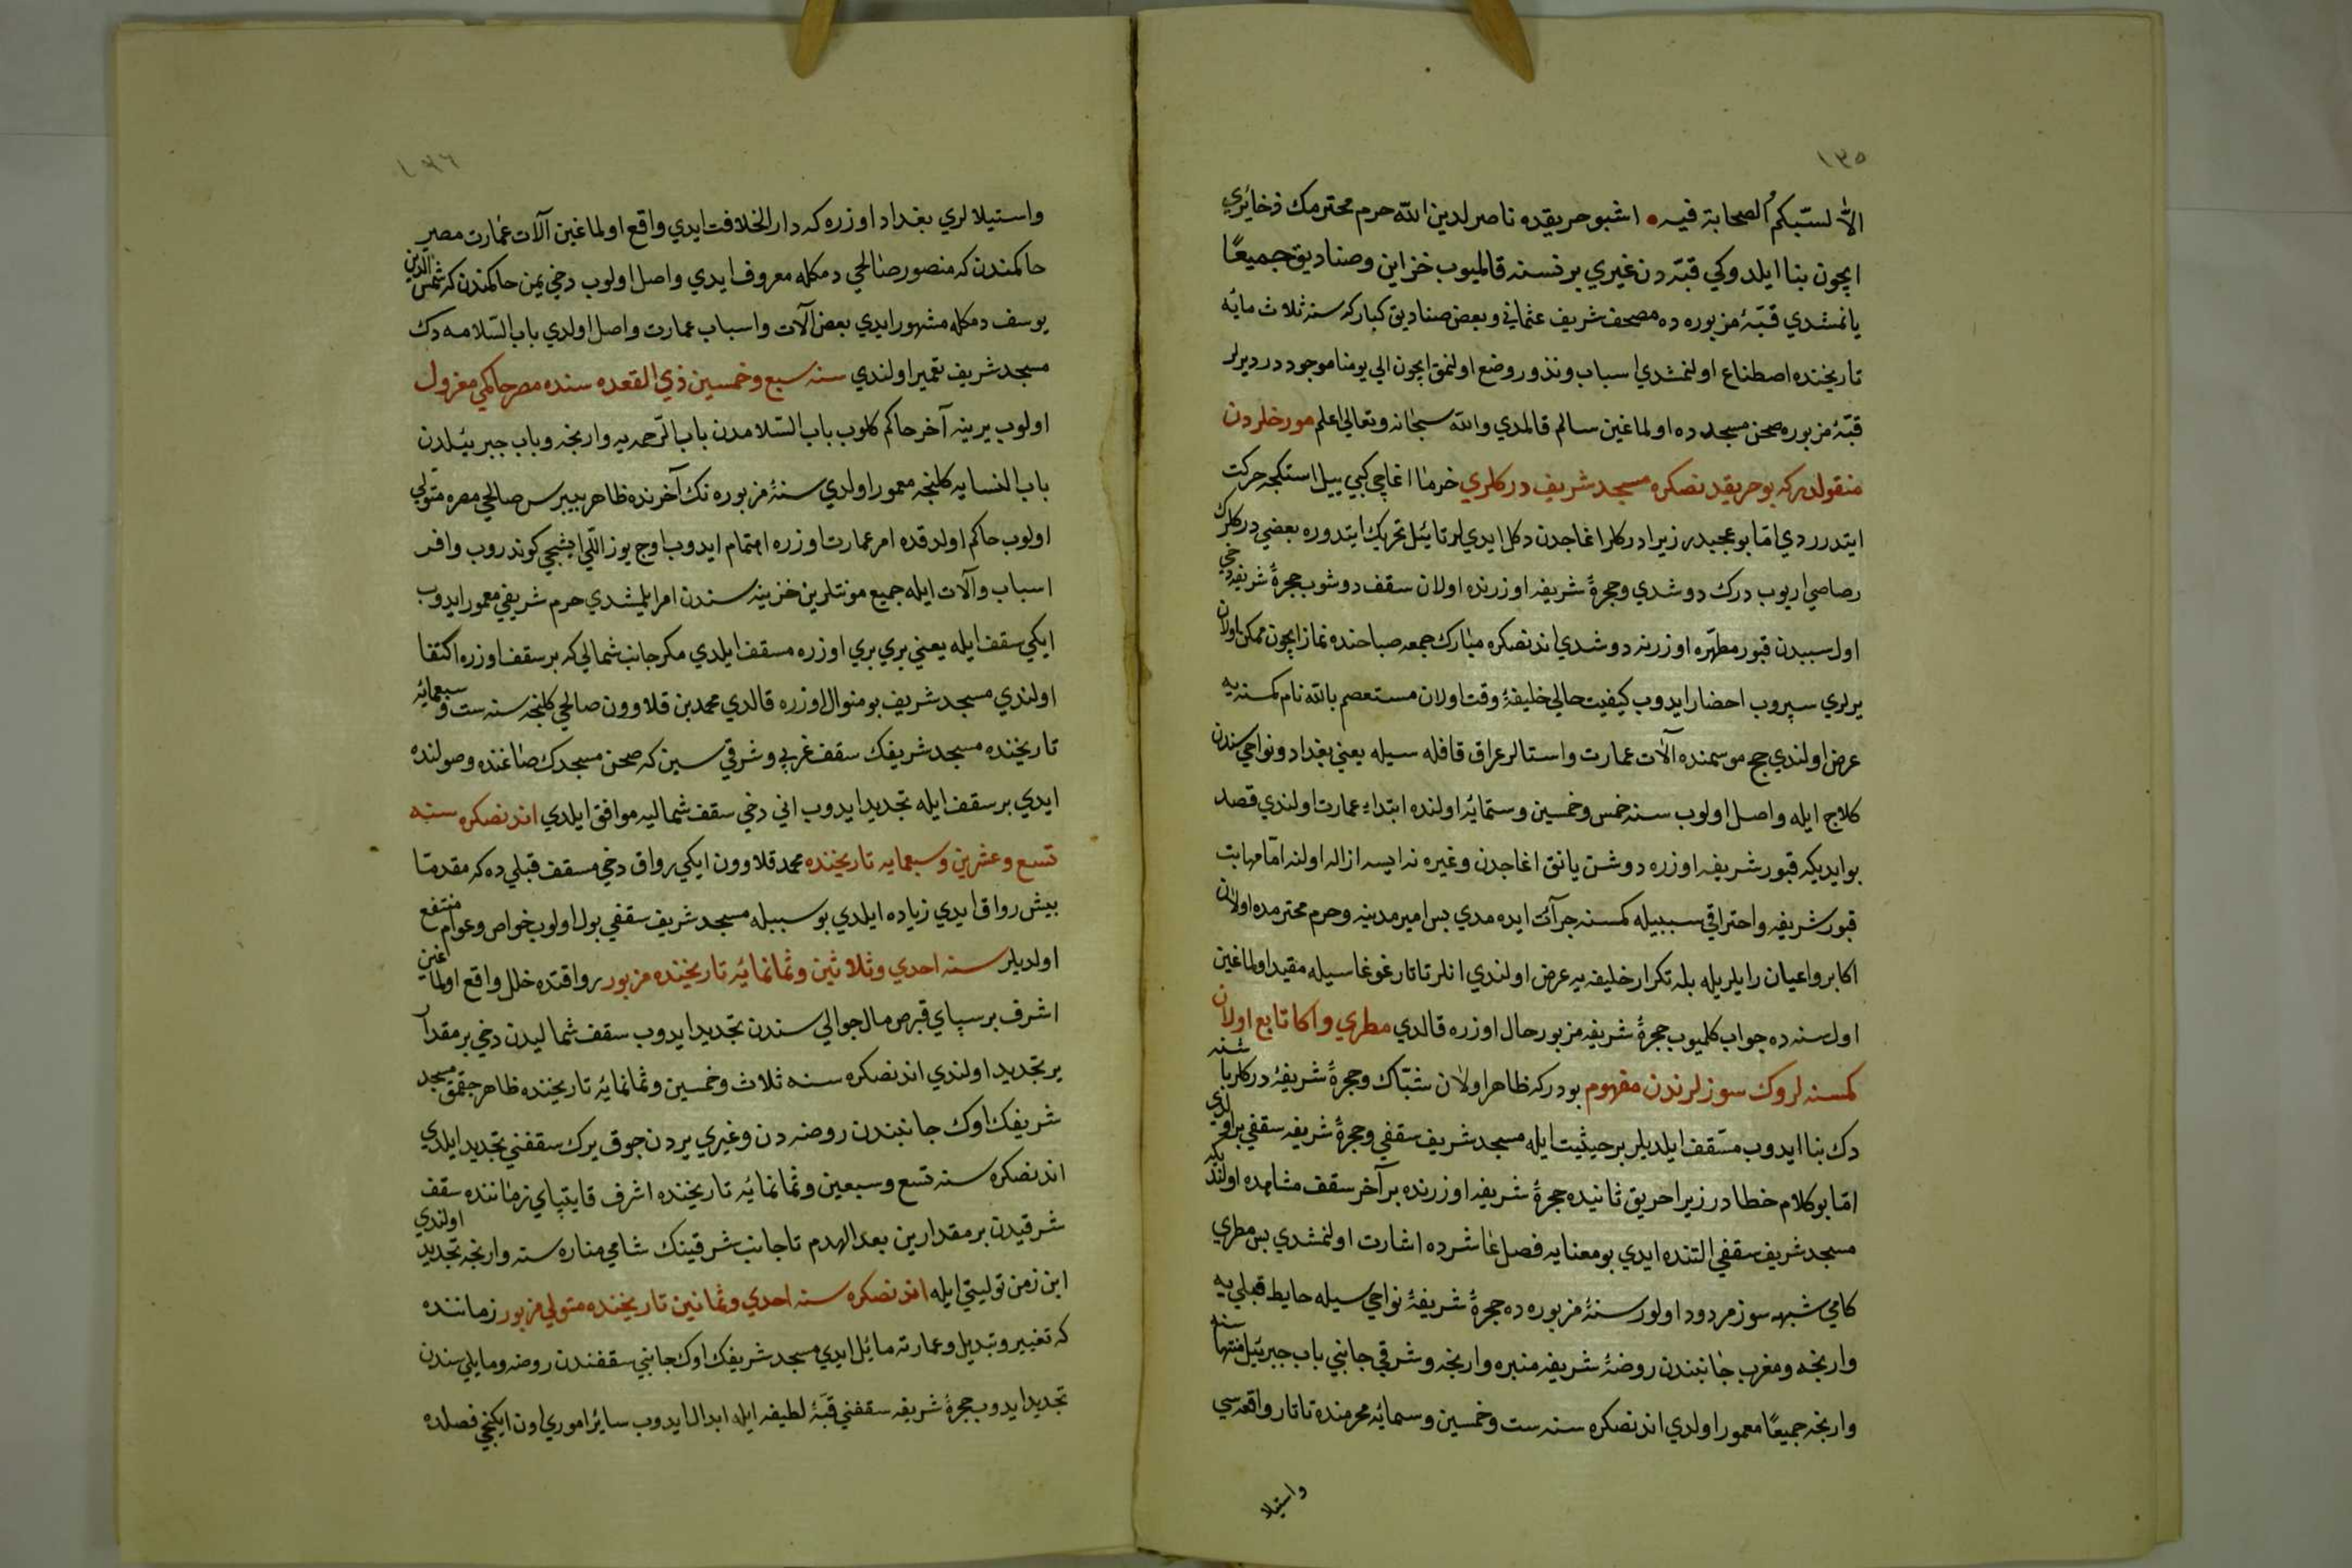 ١٣٥
الّا لسبّكم الصحابة فيه • اشبو حريقده ناصر لدين الله حرم محترمك ذخائري
ايچون بنا ايلدوكي قبّه دن غيري بر نسنه قالميوب خزاين وصناديق جميعًا
يانمشدي قبّۀ مزبوره ده مصحف شريف عثماني وبعض صناديق كباركه سنه ثلاث مايه
تاريخنده اصطناع اولنمشدي اسباب ونذور وضع اولنمق ايچون الي يومنا موجوددر ديرلر
قبّۀ مزبوره صحن مسجدده اولماغين سالم قالمدي والله سبحانه وتعالي اعلم مورخلردن
منقولدركه بو حريقدنصكره مسجد شريف دركلري خرما اغاچي كبي ييل استكجه حركت
ايتدرردي امّا بو عجبدر زيرا دركلر اغاجدن دكل ايدي لر تا ييل تحريك ايتدوره بعضي دركلرك
رصاصي اريوب درك دوشدي وحجرۀ شريفه اوزرنده اولان سقف دوشوب حجرۀ شريفه دخي
اول سببدن قبور مطهّره اوزرينه دوشدي اندنصكره مبارك جمعه صباحنده نماز ايچون ممكن اولان
يرلري سپروب احضار ايدوب كيفيت حالي خليفۀ وقت اولان مستعصم بالله نام كمسنه يه
عرض اولندي حج موسمنده آلات عمارت واستالر عراق قافله سيله يعني بغداد ونواحي سندن
كلاج ايله واصل اولوب سنه خمس وخمسين وستمايه اولنده ابتداء عمارت اولندي قصد
بو ايديكه قبور شريفه اوزره دوشن يانق اغاجدن وغيره نه ايسه ازاله اولنه امّا مهابت
قبور شريفه واحتراقي سببيله كمسنه جرآئت ايده مدي بس امير مدينه وحرم محترمده اولان
اكابر واعيان رايلريله بله تكرار خليفه يه عرض اولندي انلر تاتار غوغاسيله مقيد اولماغين
اول سنه ده جواب كلميوب حجرۀ شريفه مزبور حال اوزره قالدي مطري واكا تابع اولان
كمسنه لروك سوزلرندن مفهوم بودركه ظاهر اولان شبّاك وحجرۀ شريفۀ دركلر باشنه
دك بنا ايدوب مسقف ايلديلر بر حيثيت ايله مسجد شريف سقفي وحجرۀ شريفه سقفي بر اولدي
امّا بو كلام خطادر زيرا حريق ثانيده حجرۀ شريفه اوزرنده بر آخر سقف مشاهده اولنديكه
مسجد شريف سقفي التنده ايدي بو معنايه فصل عاشرده اشارت اولنمشدي بس مطري
كامي شبهه سوز مردود اولور سنۀ مزبوره ده حجرۀ شريفۀ نواحي سيله حايط قبلي يه
وارنجه ومغرب جانبندن روضۀ شريفه منبره وارنجه وشرقي جانبي باب جبرئيل منتهاسنه
وارنجه جميعًا معمور اولدي اندنصكره سنه ست وخمسين وستمايۀ محرمنده تاتار واقعه سي
واستيلا
١٣٦
واستيلالري بغداد اوزره كه دار الخلافت ايدي واقع اولماغين آلات عمارت مصر
حاكمندن كه منصور صالحي دمكله معروف ايدي واصل اولوب دخي يمن حاكمندن كه شمس الدين
يوسف دمكله مشهور ايدي بعض آلات واسباب عمارت واصل اولدي باب السلامه دك
مسجد شريف تعمير اولندي سنه سبع وخمسين ذي القعده سنده مصر حاكمي معزول
اولوب يرينه آخر حاكم كلوب باب السّلامدن باب الرحمه يه وارنجه وباب جبرئيلدن
باب النسايه كلنجه معمور اولدي سنۀ مزبوره نك آخرنده ظاهر بيبرس صالحي مصره متولي
اولوب حاكم اولدقده امر عمارت اوزره اهتمام ايدوب اوج يوز اللي ايشجي كوندروب وافر
اسباب وآلات ايله جميع مونتلرين خزينه سندن امر ايلمشدي حرم شريفي معمور ايدوب
ايكي سقف ايله يعني بري بري اوزره مسقف ايلدي مكر جانب شمالي كه بر سقف اوزره اكتفا
اولندي مسجد شريف بو منوال اوزره قالدي محمد بن قلاوون صالحي كلنجه سنه ست وسبعمايه
تاريخنده مسجد شريفك سقف غربي وشرقي سين كه صحن مسجدك صاغنده وصولنده
ايدي بر سقف ايله تجديد ايدوب اني دخي سقف شماليه موافق ايلدي اندنصكره سنه
تسع وعشرين وسبعمايه تاريخنده محمد قلاوون ايكي رواق دخي مسقف قبلي ده كه مقدمّا
بيش رواق ايدي زياده ايلدي بو سببله مسجد شريف سقفي بول اولوب خواص وعوام منتفع
اولديلر سنه احدي وثلاثين وثمانمايه تاريخنده مزبور رواقتده خلل واقع اولماغين
اشرف برسباي قبرص مال جوالي سندن تجديد ايدوب سقف شماليدن دخي بر مقدار
ير تجديد اولندي اندنصكره سنه ثلاث وخمسين وثمانمايه تاريخنده ظاهر جقمق مسجد
شريفك اوك جانبندن روضه دن وغيري يردن جوق يرك سقفني تجديد ايلدي
اندنصكره سنه تسع وسبعين وثمانمايه تاريخنده اشرف قايتباي زماننده سقف
شرقيدن بر مقدارين بعد الهدم تا جانب شرقينك شامي مناره سنه وارنجه تجديد اولندي
ابن زمن توليتي ايله اندنصكره سنه احدي وثمانين تاريخنده متولي مزبور زماننده
كه تغيير وتبديل وعمارته مائل ايدي مسجد شريفك اوك جانبي سقفندن روضه ومايلي سندن
تجديد ايدوب حجرۀ شريفه سقفني قبّۀ لطيفه ايله ابدال ايدوب سائر اموري اون ايكنجي فصلده